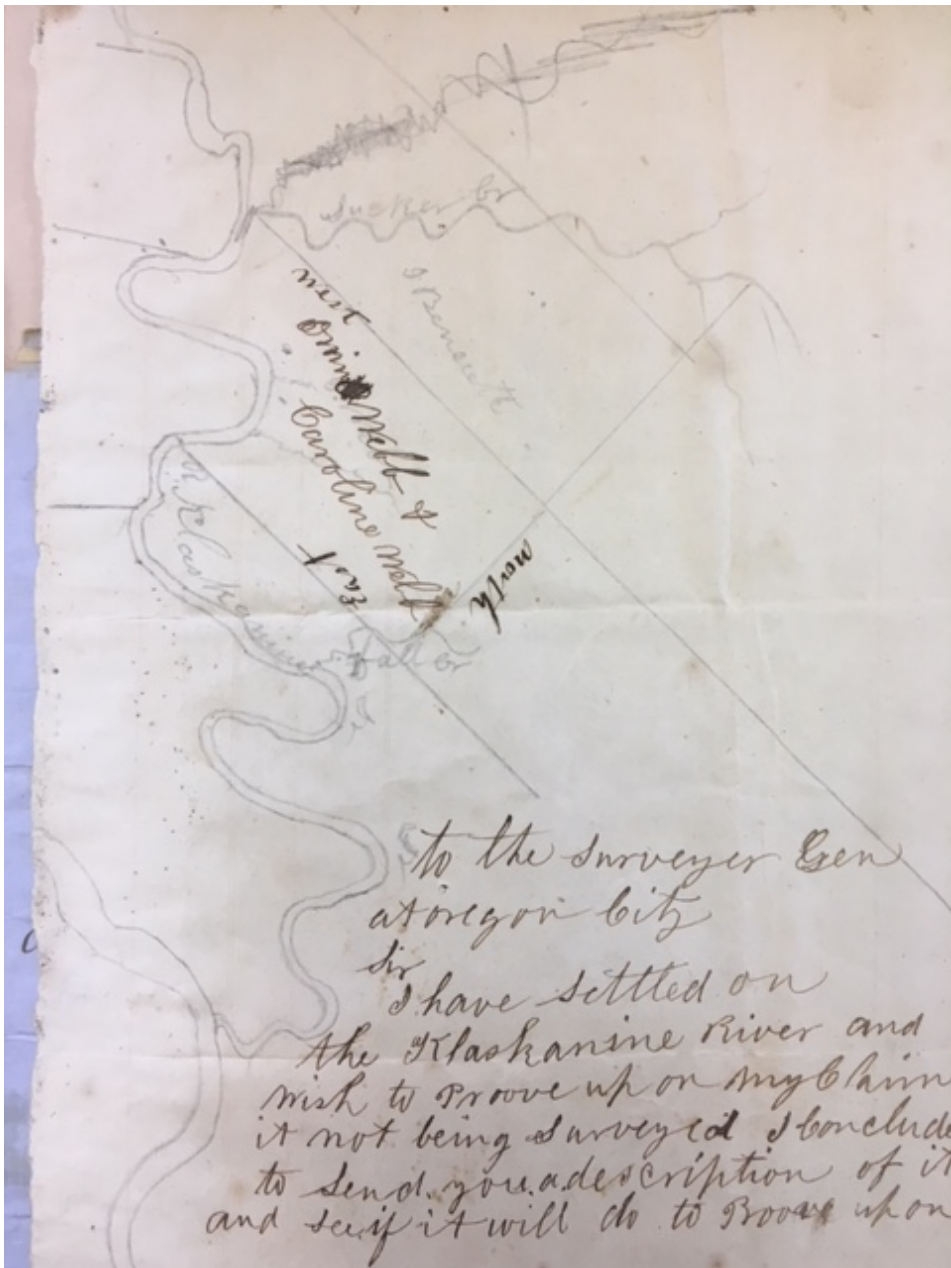 Sucker Cr
J Bennett
west
Webb &
Caroline Webb
East
north
R Klaskanine
Fall Cr
to the Surveyer Gen
at oregon City
Sir
I have settled on
the Klaskanine River and
wish to Proove up on my Claim
it not being Surveyed I Conclude
to Send you a description of it
and see if it will do to Proove up on